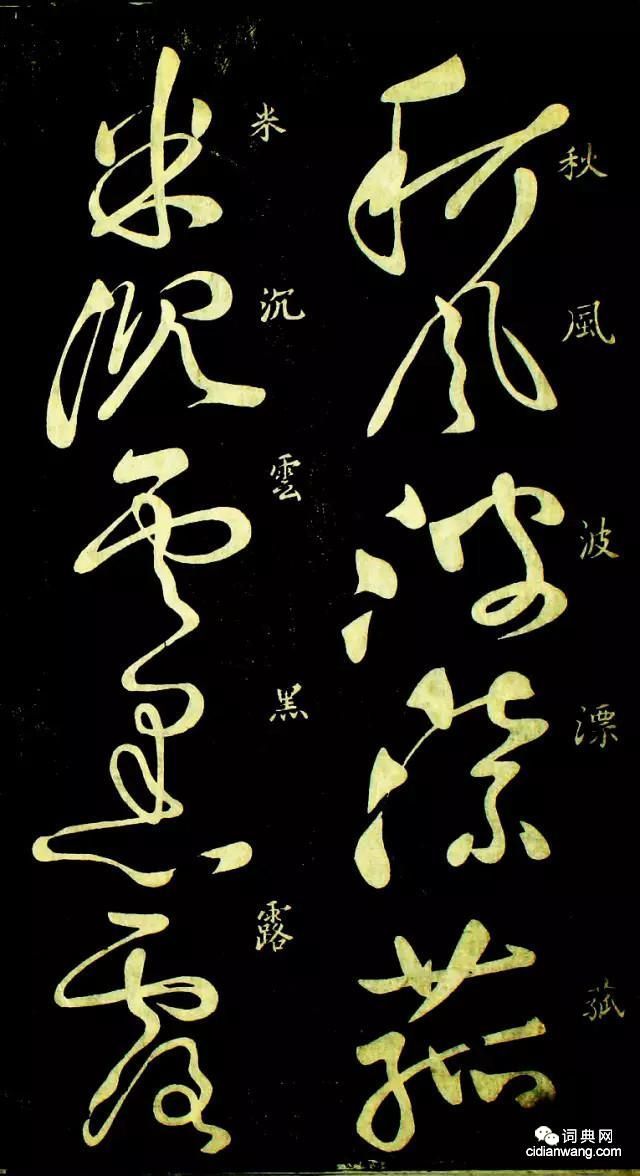 秋風波漂菰
秋風波漂菰
米沉雲黑露
米沉雲黑露
词典网
cidianwang.com